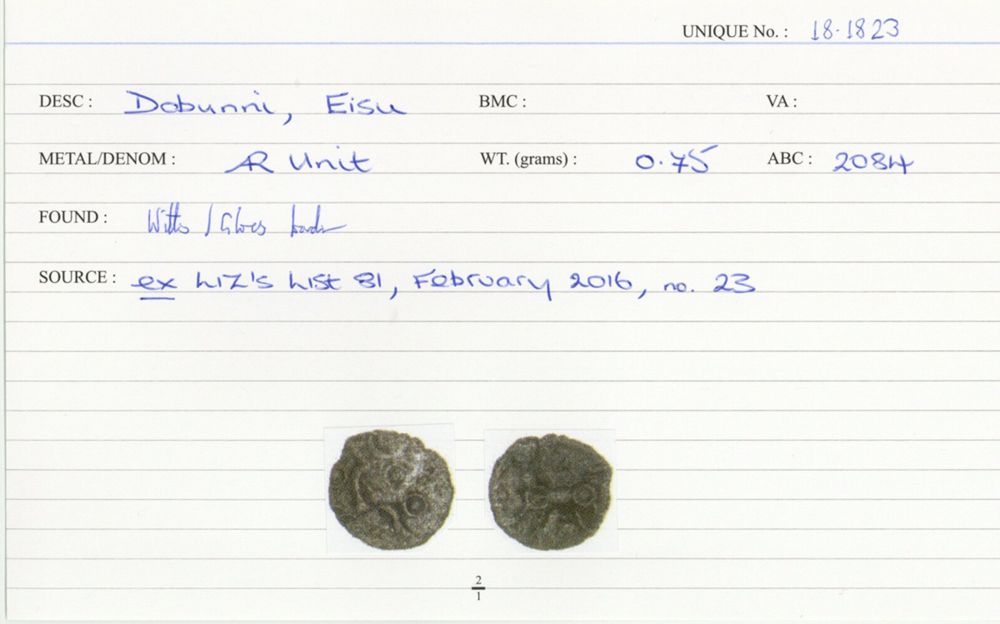 UNIQUE No. : 18.1823
DESC : Dobunni, Eisu BMC : VA :
METAL/DENOM : AR Unit WT. (grams) : 0.75 ABC : 2084
FOUND : Wilts / Glos border
SOURCE : ex Liz's List 81, February 2016, no. 23
2
1